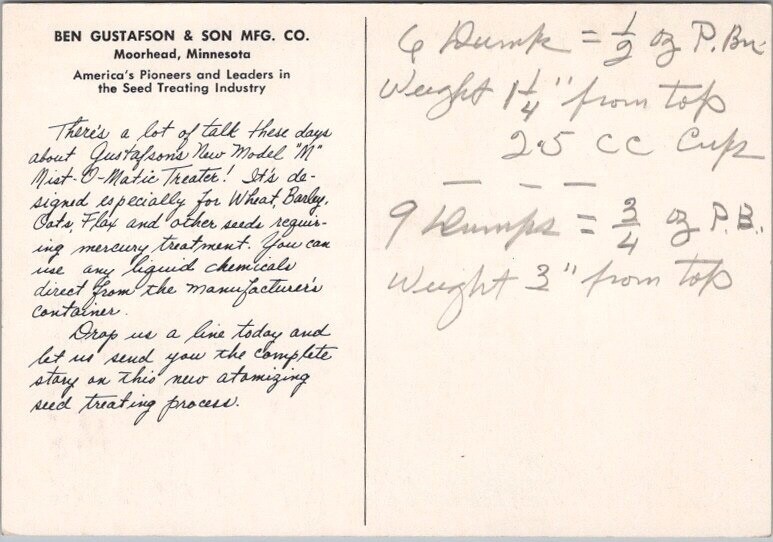 BEN GUSTAFSON & SON MFG. CO.
Moorhead, Minnesota
America's Pioneers and Leaders in
the Seed Treating Industry
There's a lot of talk these days
about Gustafson's New Model "M"
Mist-O-Matic Treater! It's de-
signed especially for Wheat, Barley,
Oats, Flax and other seeds requir-
ing mercury treatment. You can
use any liquid chemicals
direct from the manufacturer's
container.
Drop us a line today and
let us send you the complete
story on this new atomizing
seed treating process.
6 Dumps = 1/2 oz P. Bu.
Weight 1 1/4" from top
25 CC Cups
— — —
9 Dumps = 3/4 oz P. B..
Weight 3" from top